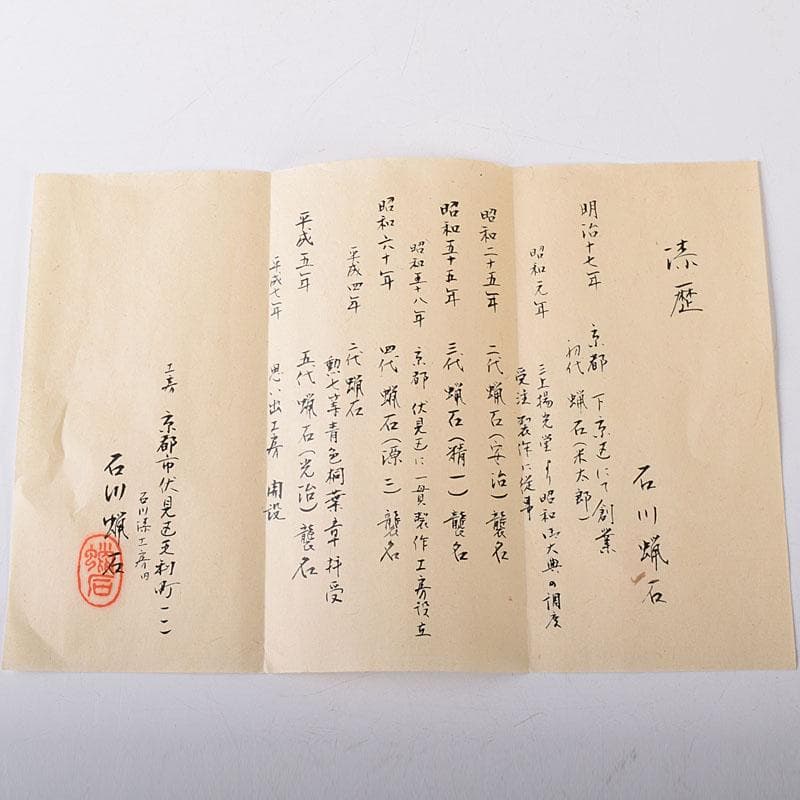 漆歴
石川蝋石
明治十七年 京都 下京区にて創業
初代 蝋石(米太郎)
昭和元年 三上揚光堂より昭和御大典の調度
受注製作に従事
昭和二十五年 二代蝋石(安治)襲名
昭和五十五年 三代蝋石(精一)襲名
昭和五十八年 京都 伏見区に一貫製作工房設立
昭和六十年 四代蝋石(源三)襲名
平成四年 二代蝋石
勲七等青色桐葉章拝受
平成五年 五代蝋石(光治)襲名
平成七年 思い出工房 開設
工房 京都市伏見区毛利町一一
石川漆工房内
石川蝋石
蝋石